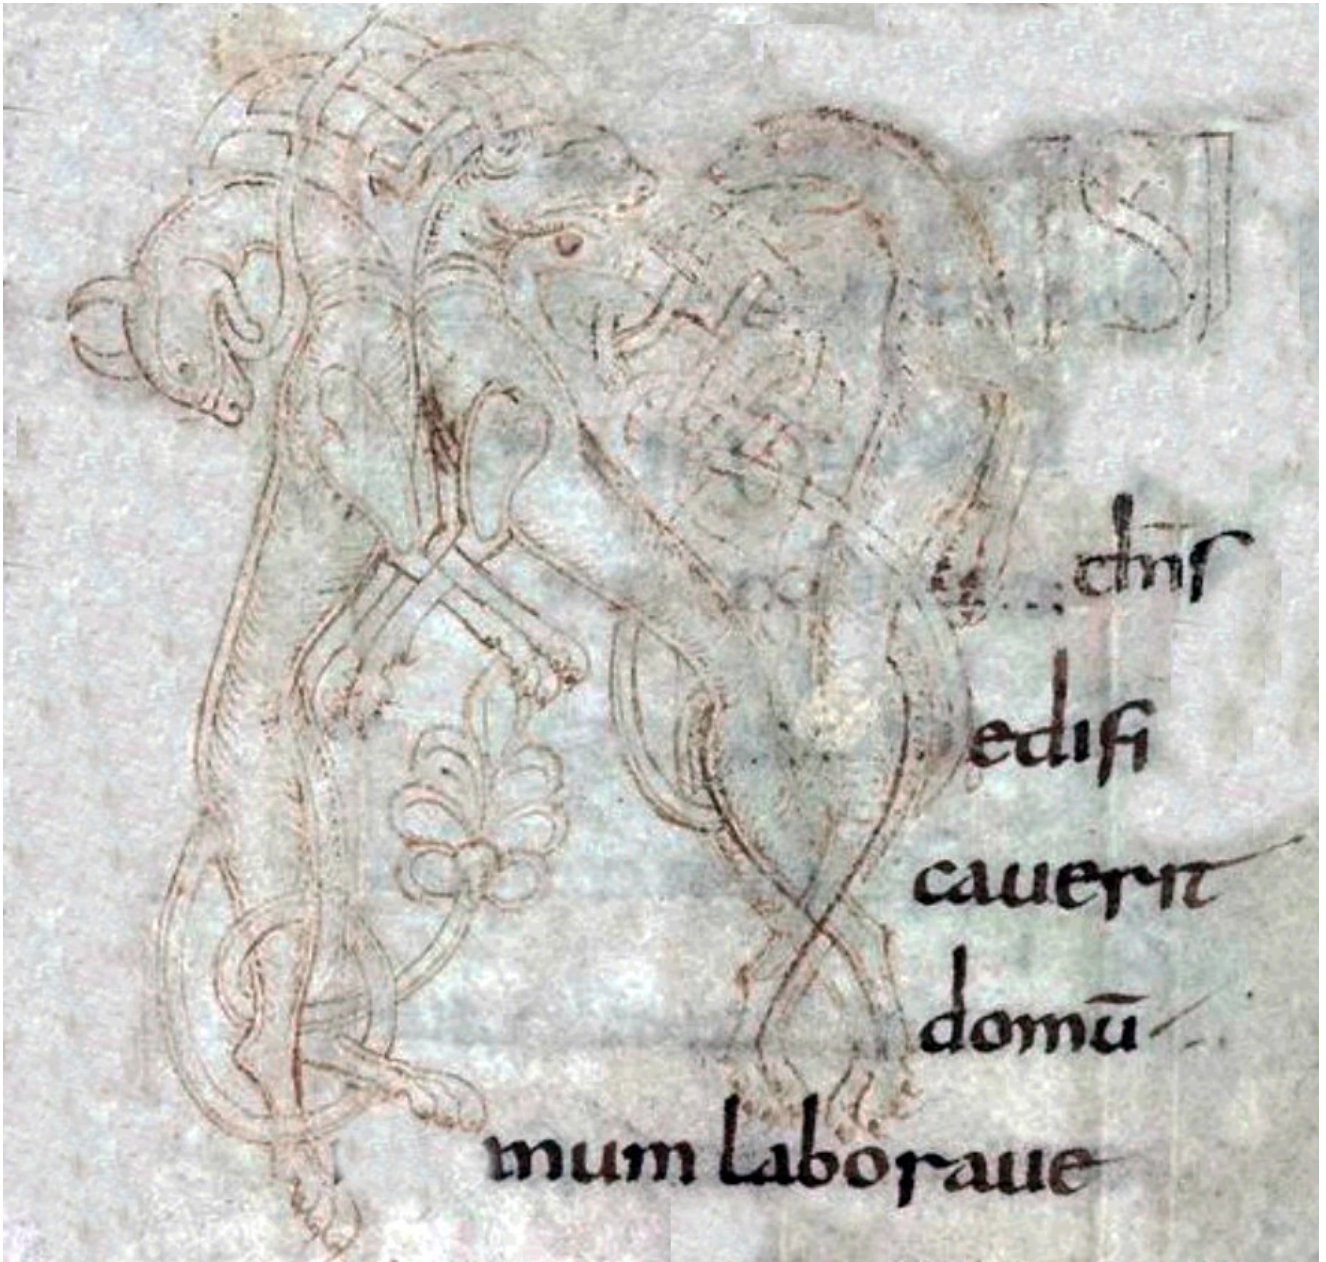 NISI
dn̄s
edifi
cauerit
domū
mum laboraue